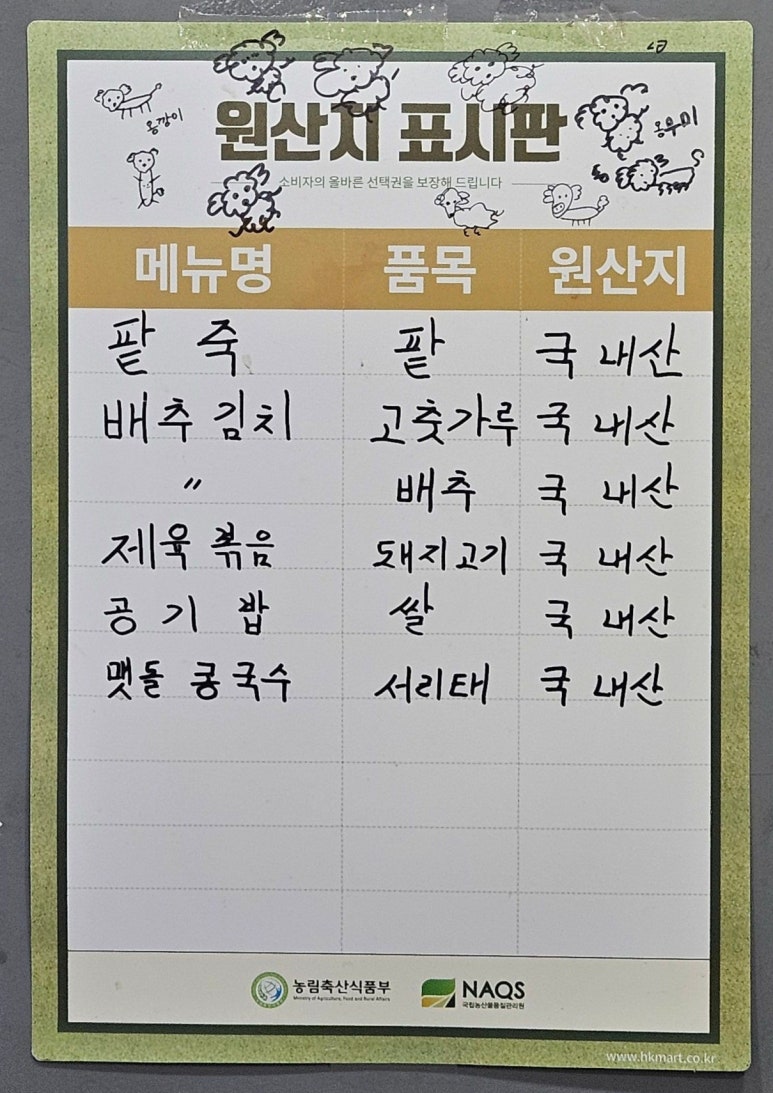 원산지 표시판
소비자의 올바른 선택권을 보장해 드립니다
옹깡이
옹우미
메뉴명 품목 원산지
팥 죽 팥 국 내산
배추 김치 고춧가루 국 내산
〃 배추 국 내산
제육 볶음 돼지고기 국 내산
공 기 밥 쌀 국 내산
맷돌 콩국수 서리태 국 내산
농림축산식품부 NAQS
Ministry of Agriculture, Food and Rural Affairs 국립농산물품질관리원
www.hkmart.co.kr